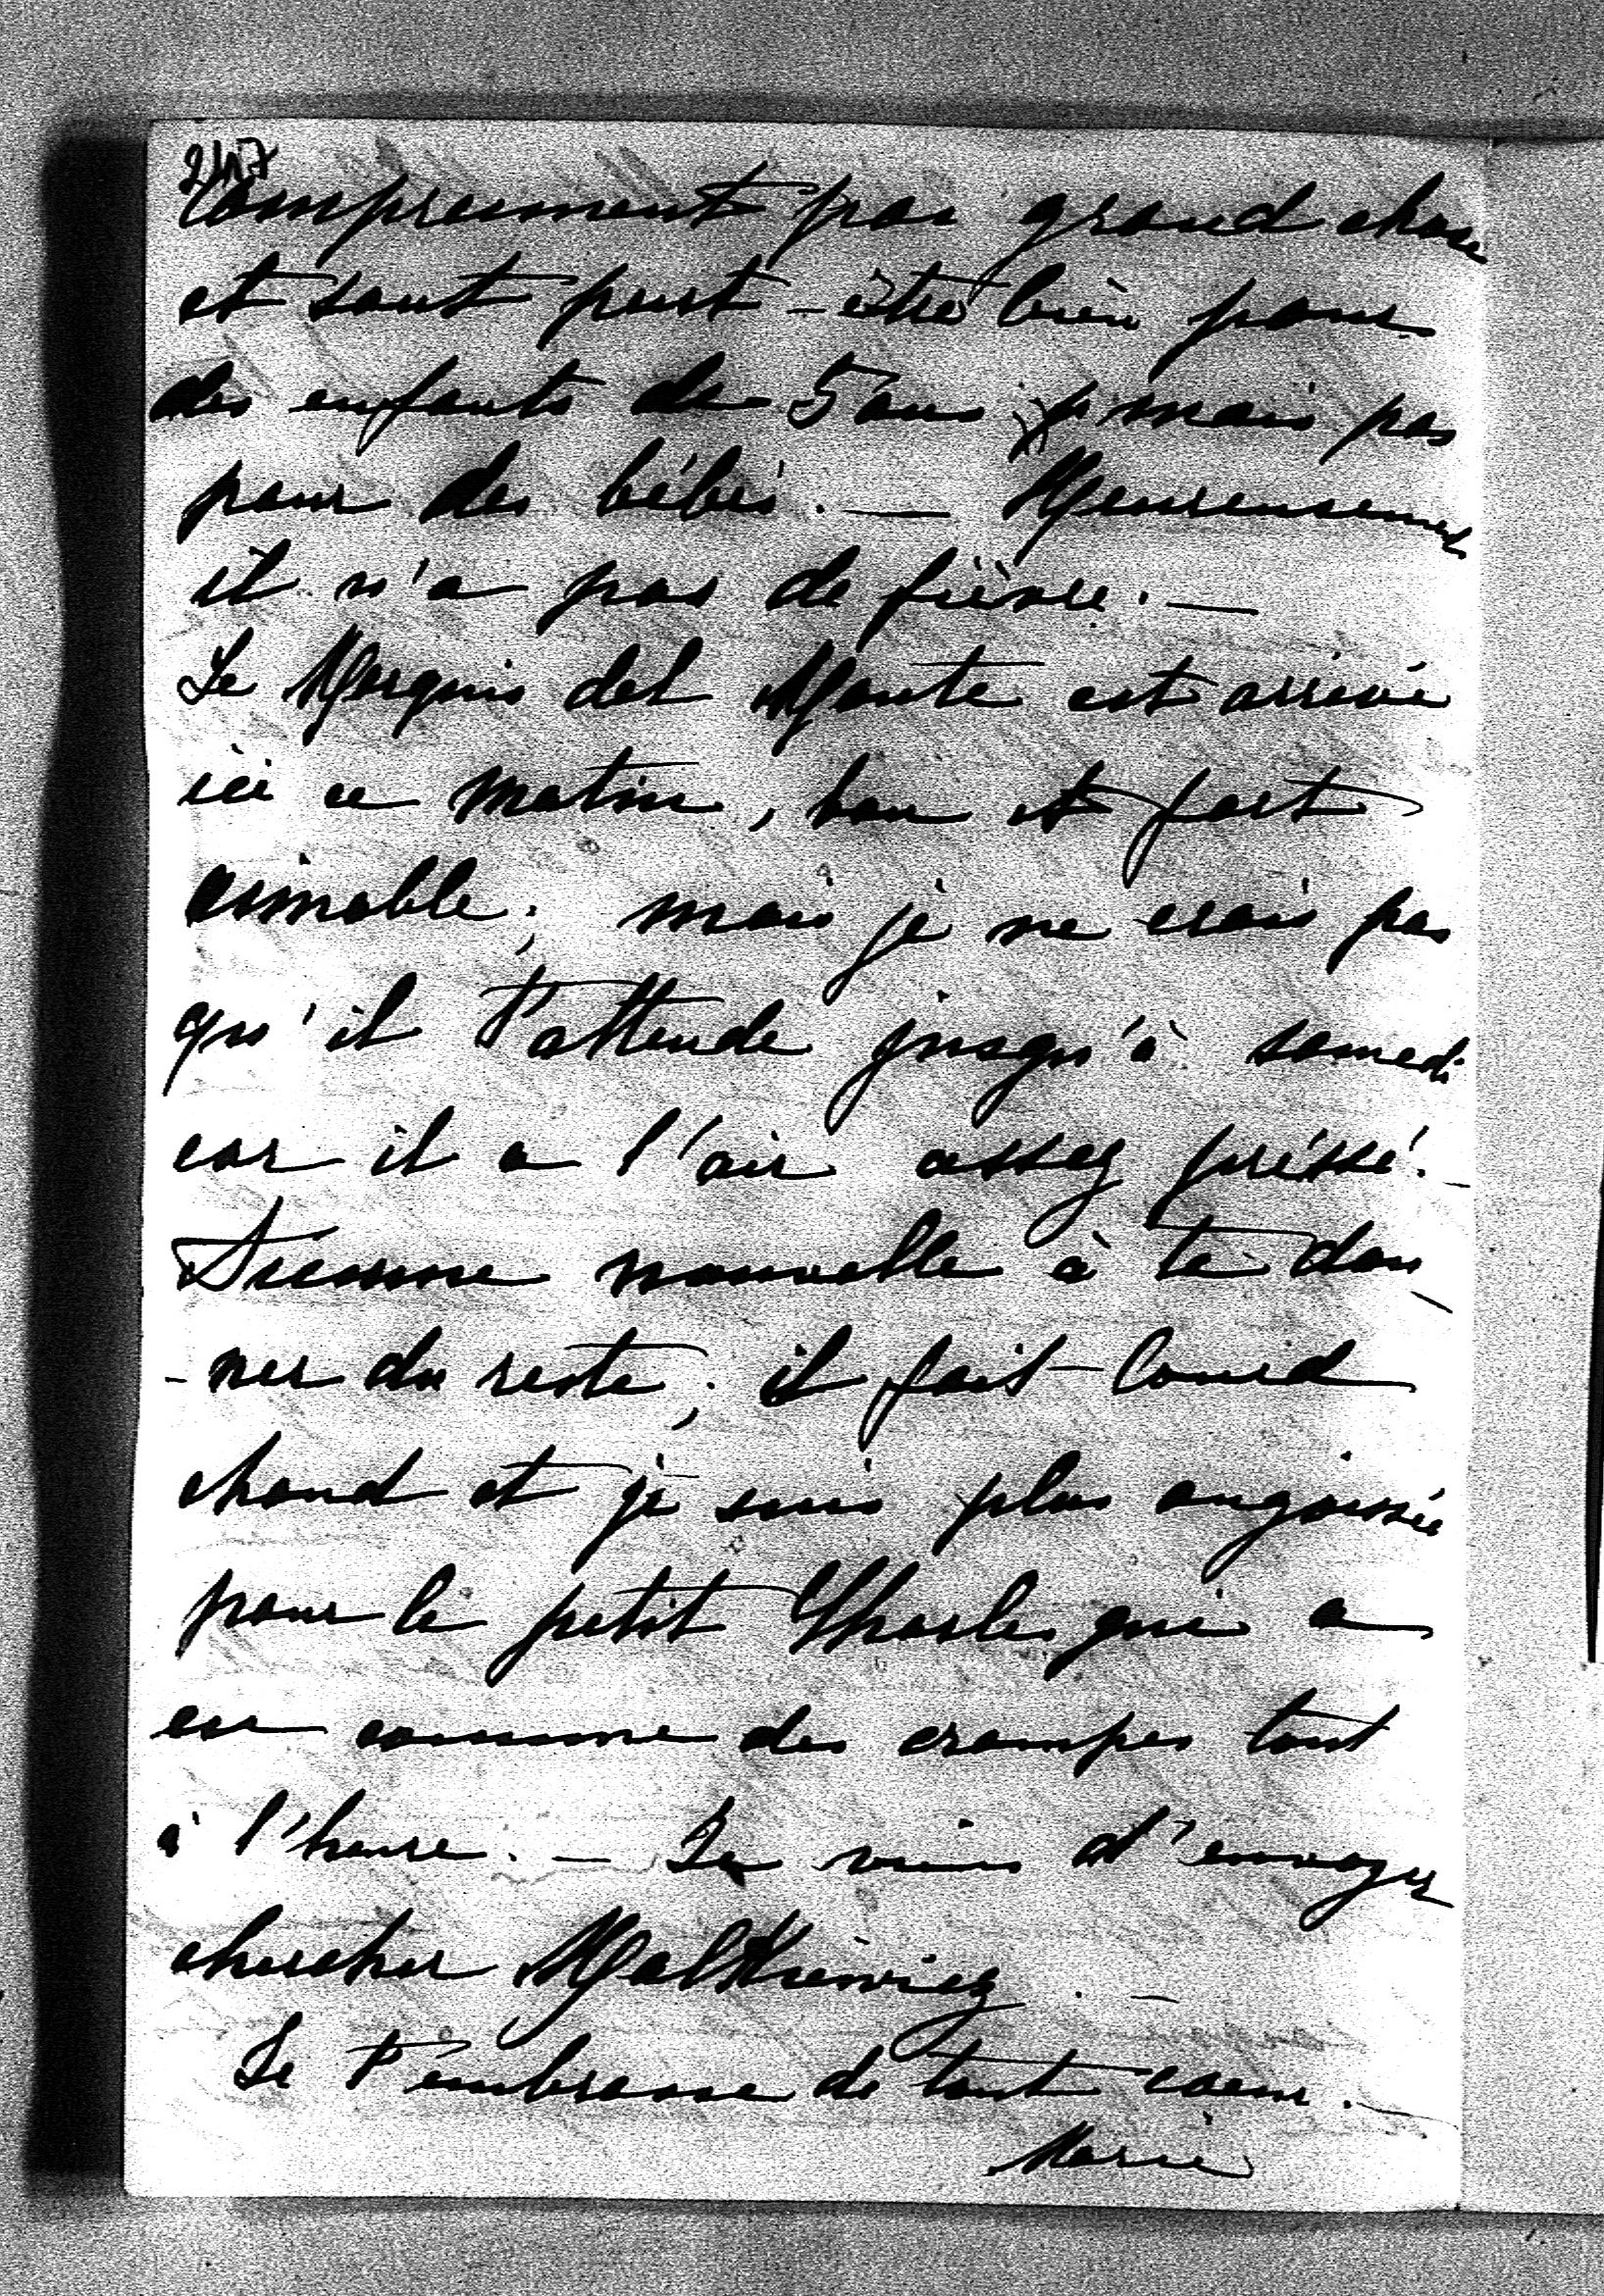 247
comprennent pas grand chose
et sont peut-être bien pour
des enfants de 5 ans mais pas
pour des bébés. — Heureusement
il n'a pas de fièvre. —
Le Marquis del Monte est arrivé
ici ce matin, bon et fort
aimable; mais je ne crois pas
qu'il t'attende jusqu'à samedi
car il a l'air assez préssé. —
Aucune nouvelle à te don-
-ner du reste; il fait lourd
chaud et je suis plus angoissée
pour le petit Charles qui a
eu comme des crampes tout
à l'heure. — Je viens d'envoyer
chercher Malkiewicz. —
Je t'embrasse de tout coeur. —
Marie